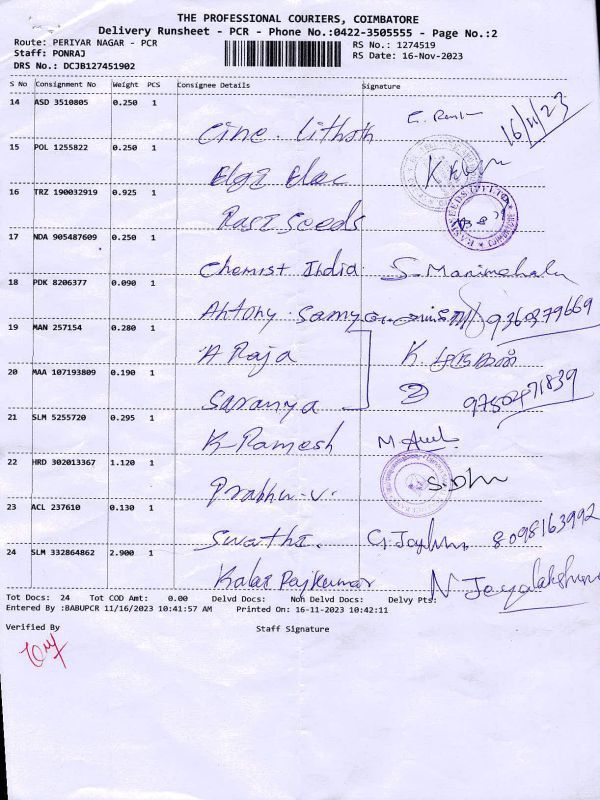 THE PROFESSIONAL COURIERS, COIMBATORE
Delivery Runsheet - PCR - Phone No.:0422-3505555 - Page No.:2
Route: PERIYAR NAGAR - PCR RS No.: 1274519
Staff: PONRAJ RS Date: 16-Nov-2023
DRS No.: DCJB127451902
S No Consignment No Weight PCS Consignee Details Signature
16/11/23
14 ASD 3510805 0.250 1 Cine. Lithoth
15 POL 1255822 0.250 1 Elgi Elac
16 TRZ 190032919 0.925 1 Rasi Seeds
17 NDA 905487609 0.250 1 Chemist India S. Manimehala
18 PDK 8206377 0.090 1 Antony Samy 9360379669
19 MAN 257154 0.280 1 A Raja K.
20 MAA 107193809 0.190 1 Saranya 2 9750471839
21 SLM 5255720 0.295 1 K Ramesh
22 HRD 302013367 1.120 1 Prabhu. v.
23 ACL 237610 0.130 1 Swathi. 8098163992
24 SLM 332864862 2.900 1 Kalai Rajkumar N Jayalakshmi
Tot Docs: 24 Tot COD Amt: 0.00 Delvd Docs: Non Delvd Docs: Delvy Pts:
Entered By :BABUPCR 11/16/2023 10:41:57 AM Printed On: 16-11-2023 10:42:11
Verified By Staff Signature